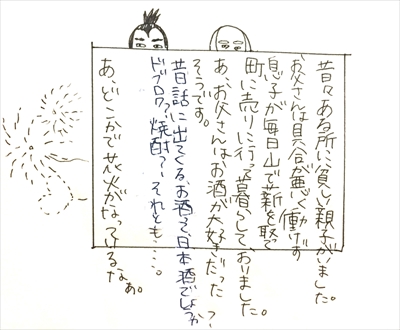 昔々ある所に貧しい親子がいました。
お父さんは具合が悪く働けず
息子が毎日山で薪を取って
町に売りに行って暮らしておりました。
あ、お父さんはお酒が大好きだった
そうです。
昔話に出てくるお酒って、日本酒でしょうか?
ドブロク?、焼酎?、それとも・・・。
あ、どこかで花火がなっているなぁ。